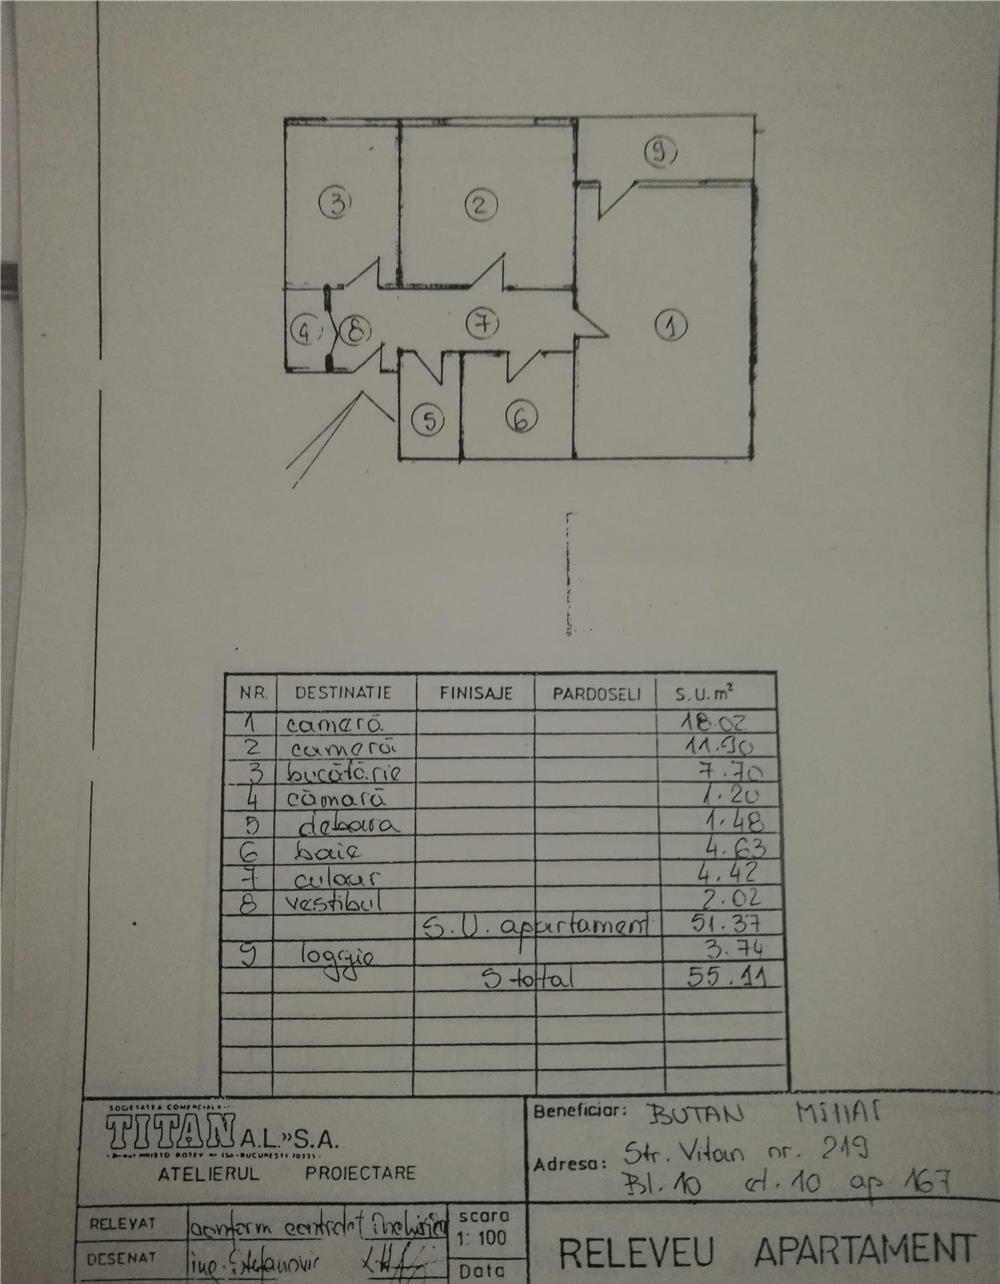 9
3
2
4
8
7
1
5
6
NR. DESTINATIE FINISAJE PARDOSELI S.U.m²
1 cameră 18.02
2 cameră 11.90
3 bucătărie 7.70
4 cămară 1.20
5 debara 1.48
6 baie 4.63
7 culoar 4.42
8 vestibul 2.02
S.U. apartament 51.37
9 loggie 3.74
S total 55.11
SOCIETATEA COMERCIALA
TITAN A.L.»S.A.
ATELIERUL PROIECTARE
Beneficiar: BUTAN MIHAI
Adresa: Str. Vitan nr. 219
Bl. 10 et. 10 ap 167
RELEVAT conform contract
DESENAT ing. Stefanovic
scara
1:100
Data
RELEVEU APARTAMENT